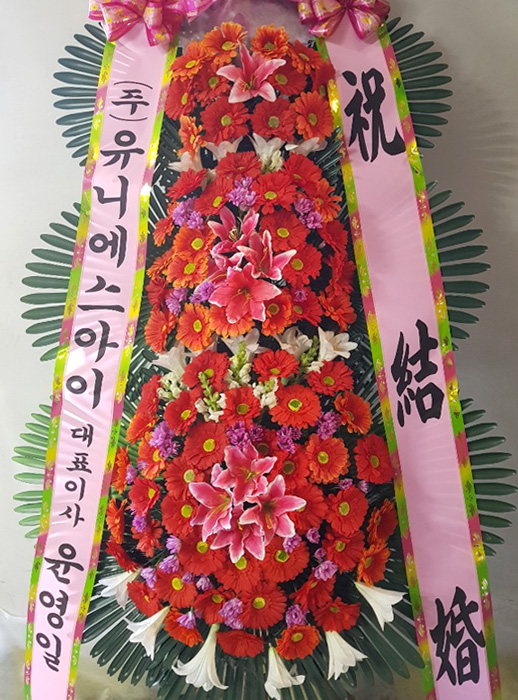 (주)유니에스아이 대표이사 윤영일
祝 結 婚